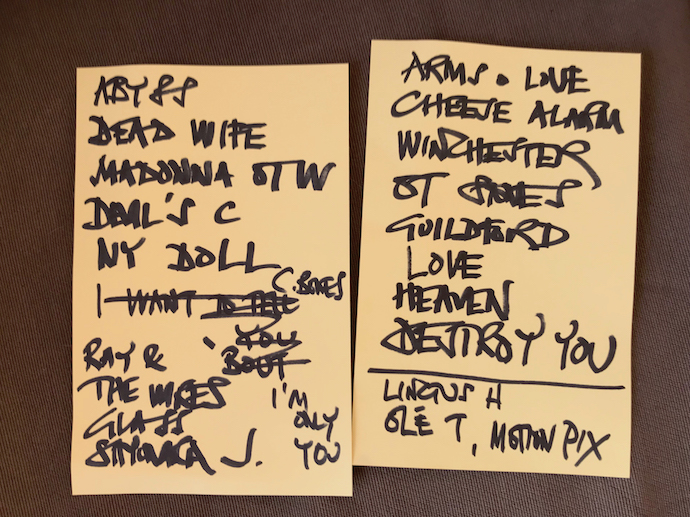 ABYSS
DEAD WIFE
MADONNA OTW
DEVIL'S C
NY DOLL
C. BONES
I WANT TO TELL
YOU
BOUT
RAY &
THE WIRES
GLASS
J.
I'M
ONLY
YOU
ARMS . LOVE
CHEESE ALARM
WINCHESTER
OT
GUILDFORD
LOVE
HEAVEN
DESTROY YOU
LINCTUS H
OLÉ T, MOTION PIX